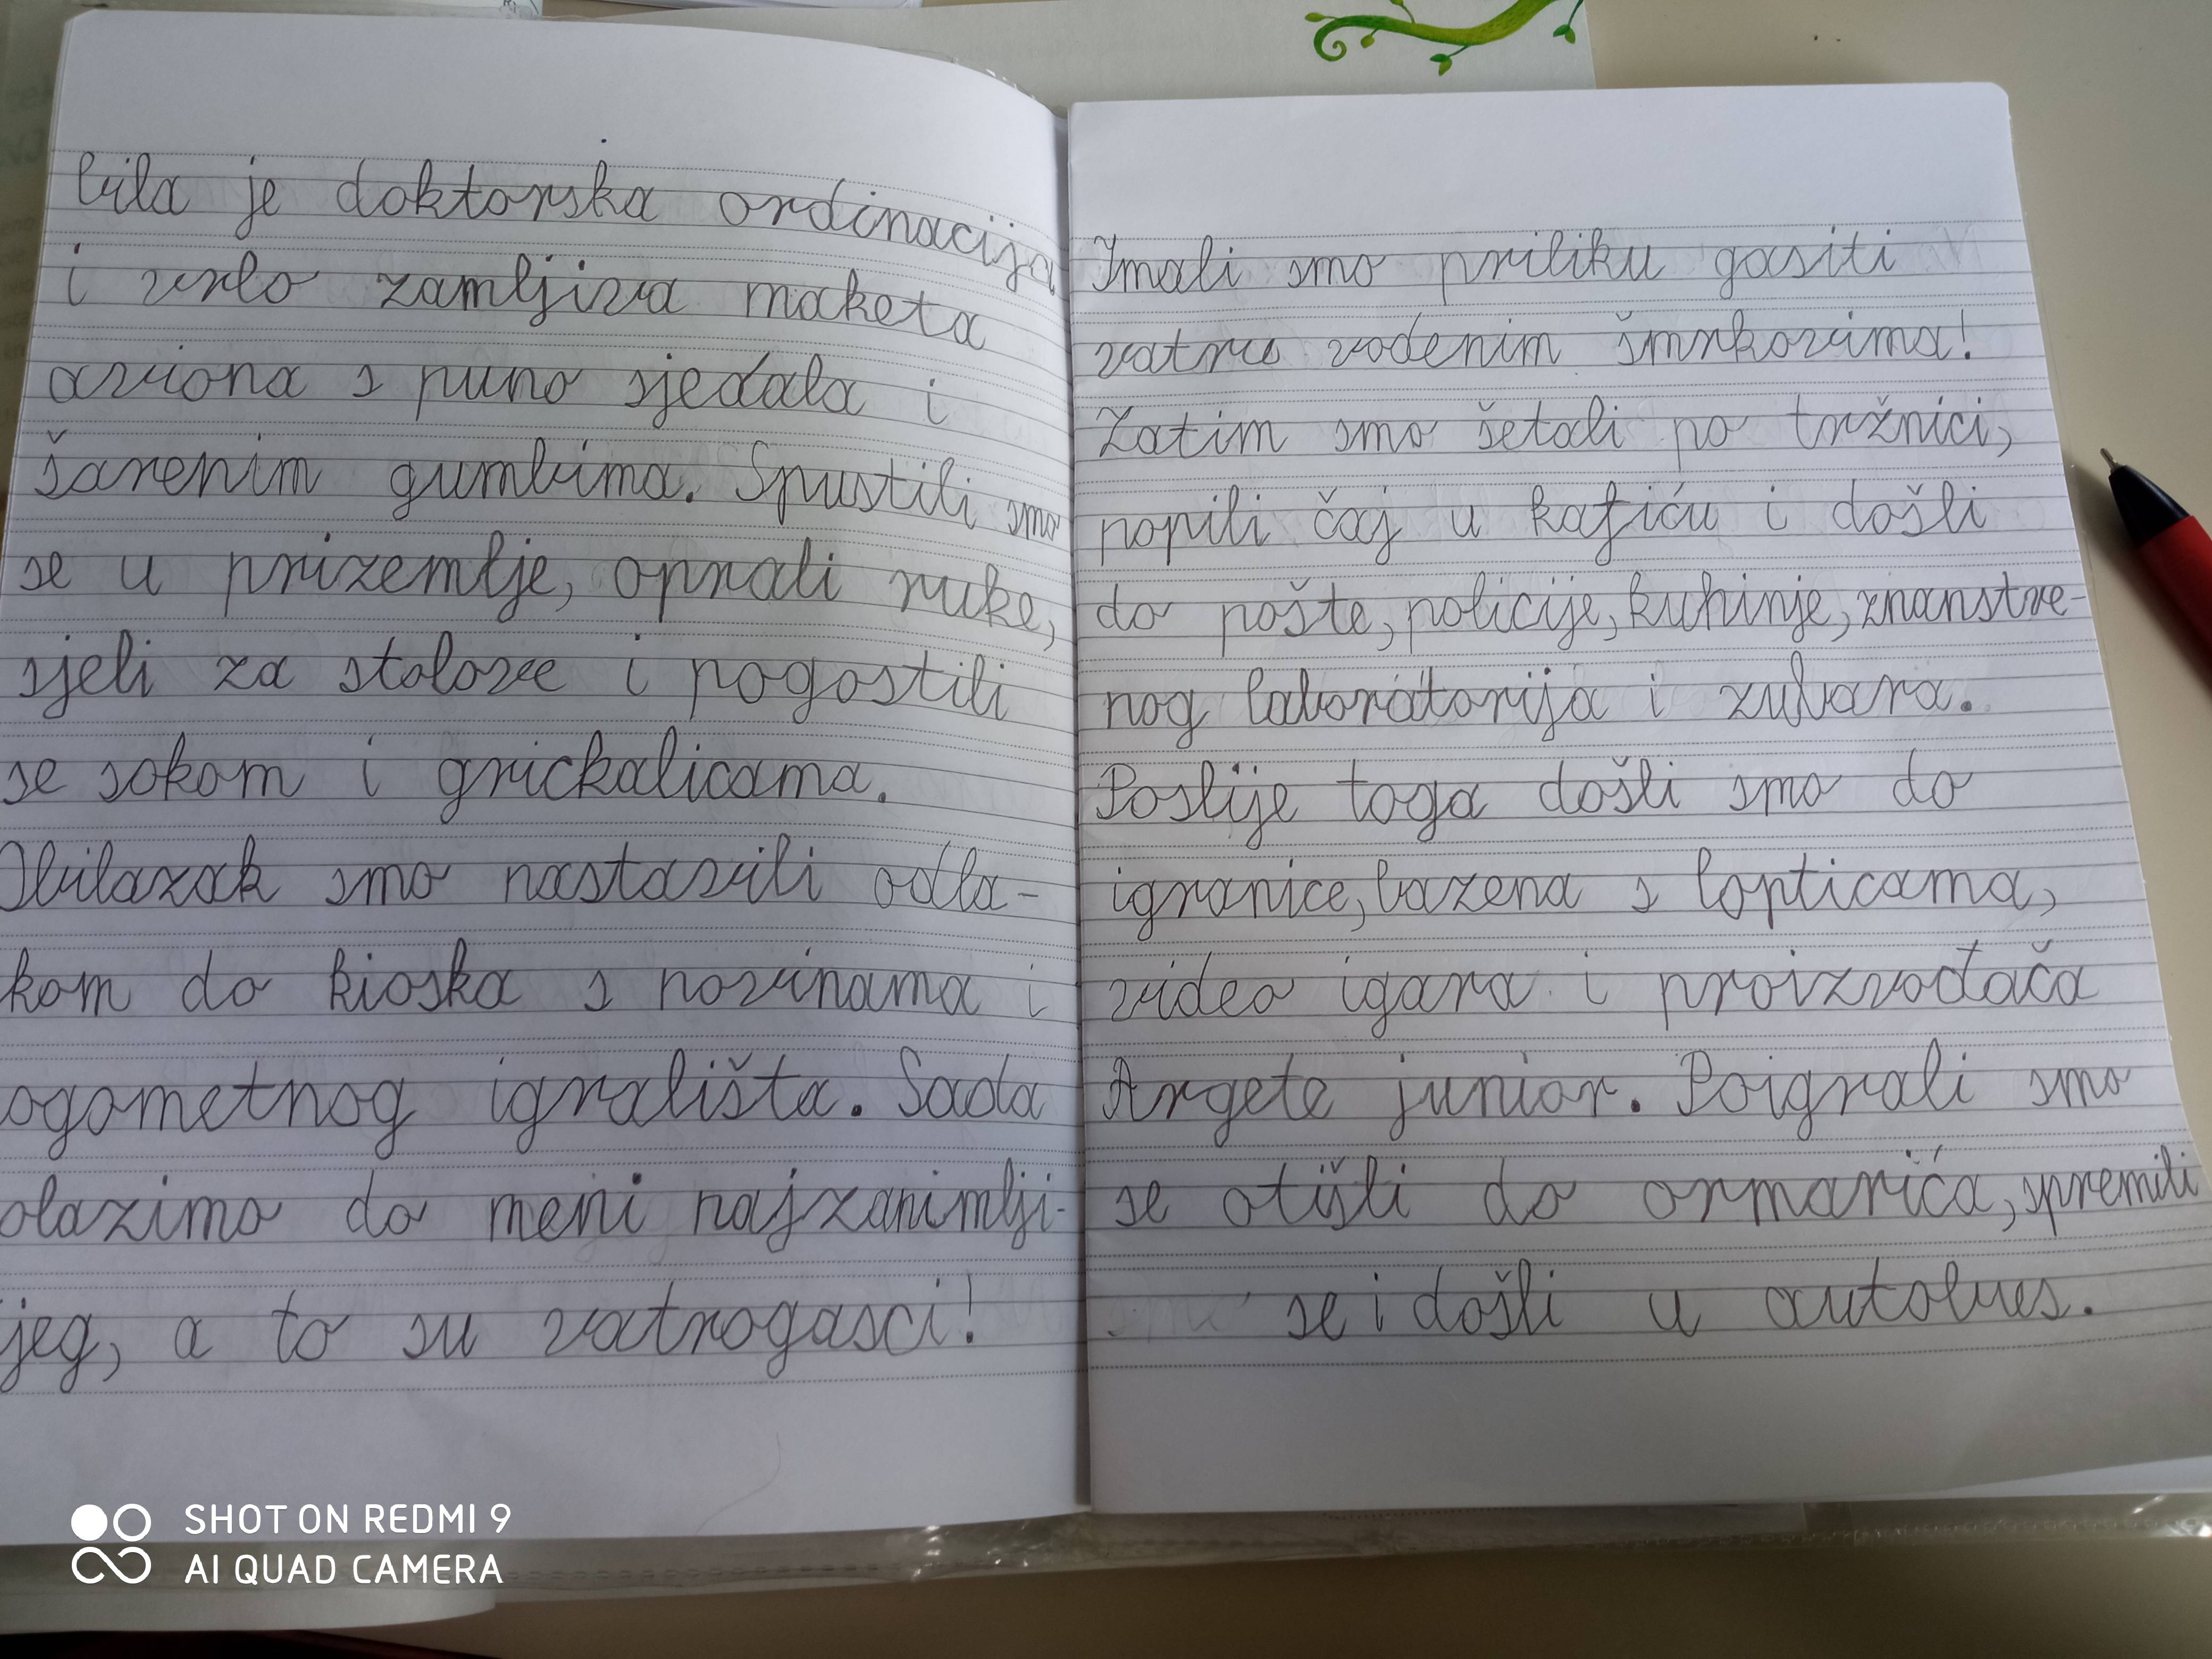 bila je doktorska ordinacija
i vrlo zamljiva maketa
aviona s puno sjedala i
šarenim gumbima. Spustili smo
se u prizemlje, oprali ruke,
sjeli za stolove i pogostili
se sokom i grickalicama.
Obilazak smo nastavili odla-
kom do kioska s novinama i
ogometnog igrališta. Sada
olazimo do meni najzanimlji-
jeg, a to su vatrogasci!
Imali smo priliku gasiti
vatru vodenim šmrkovima!
Zatim smo šetali po tržnici,
popili čaj u kafiću i došli
do pošte, policije, kuhinje, znanstve-
nog laboratorija i zubara.
Poslije toga došli smo do
igranice, bazena s lopticama,
video igara i proizvođača
Argete junior. Poigrali smo
se otišli do ormarića, spremili
se i došli u autobus.
SHOT ON REDMI 9
AI QUAD CAMERA